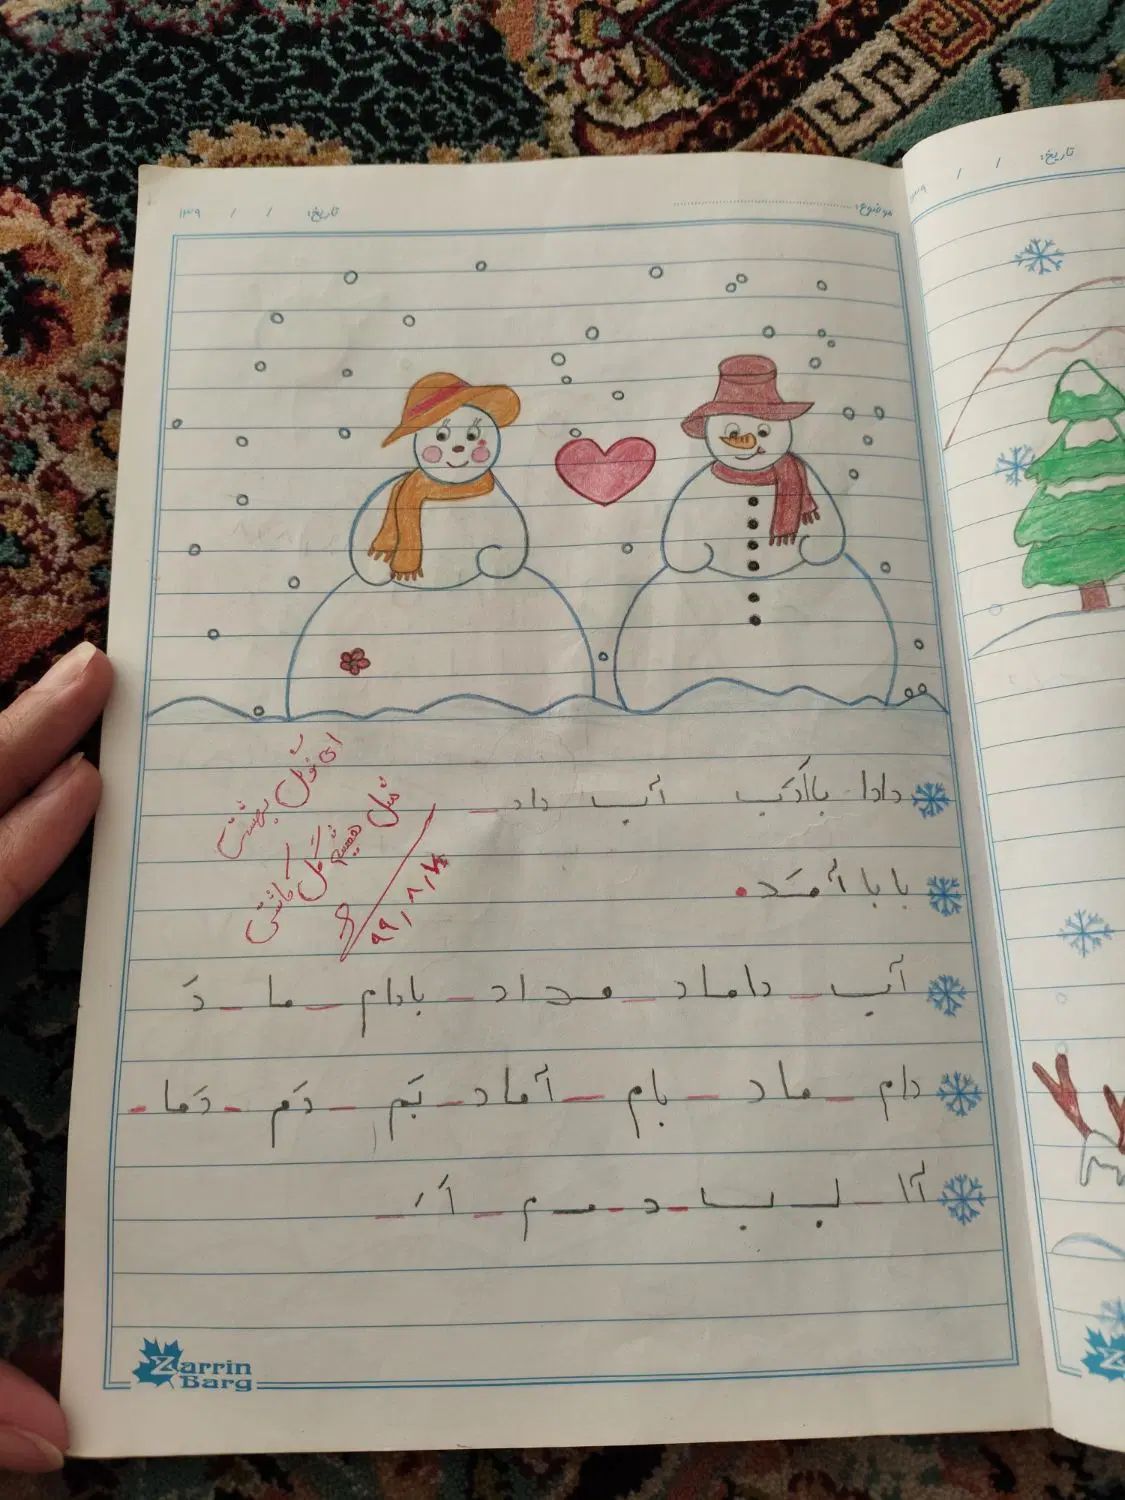 موضوع:
تاریخ: / / ۱۳۹
تاریخ: / / ۱۳۹
دادا با اَدَب آب داد_
بابا آمَد.
آب _ داماد _ مداد _ بادام _ ما _ دَ
دام _ ماد _ بام _ آماد _ بَم _ دَم _ دَما _
آ ا _ بـ ب _ د _ مـ م _ اَ ـَ _
ای گل بهشتی
مثل همیشه گل کاشتی
۹۹/۸/
Zarrin
Barg